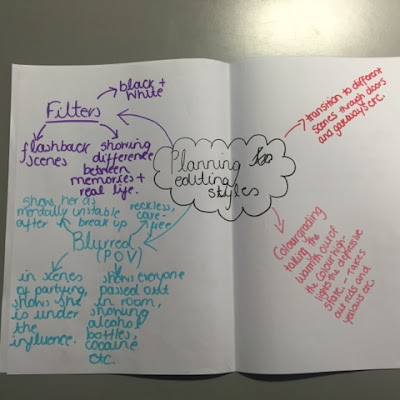 Planning for
editing
styles
Filters
black +
white
flashback
scenes
showing
difference
between
memories +
real life.
Blurred
(POV)
show her as
mentally unstable
after break up
reckless,
care-
free
in scenes
of partying,
shows she
is under
the
influence.
shows everyone
passed out
in room,
showing
alcohol
bottles,
cocaine
etc.
transition to different
scenes through doors
and gateways etc.
Colourgrading
taking the
warmth out of
the colour high-
lights the depressive
state - takes
out reds and
yellows etc